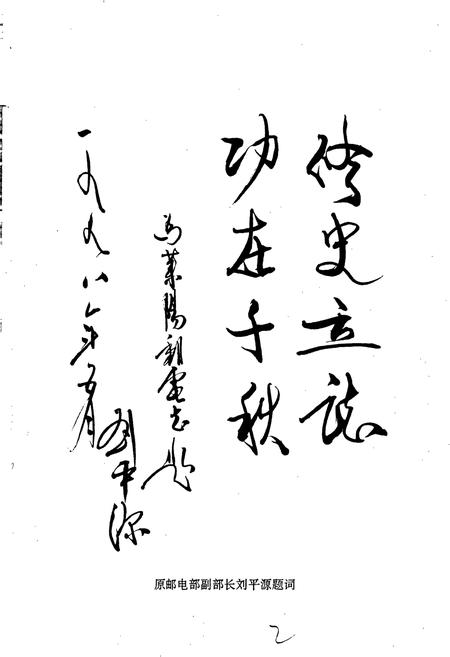 修史立誌
功在千秋
为莱陽郵电志题
刘平源
一九九八年五月
原邮电部副部长刘平源题词
2